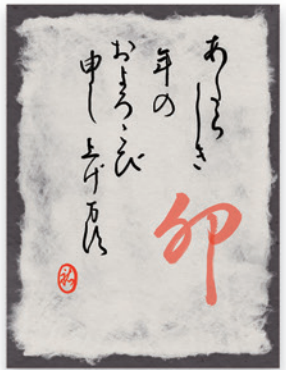 あたらしき
年の
およろこび
申し上げ万須
卯